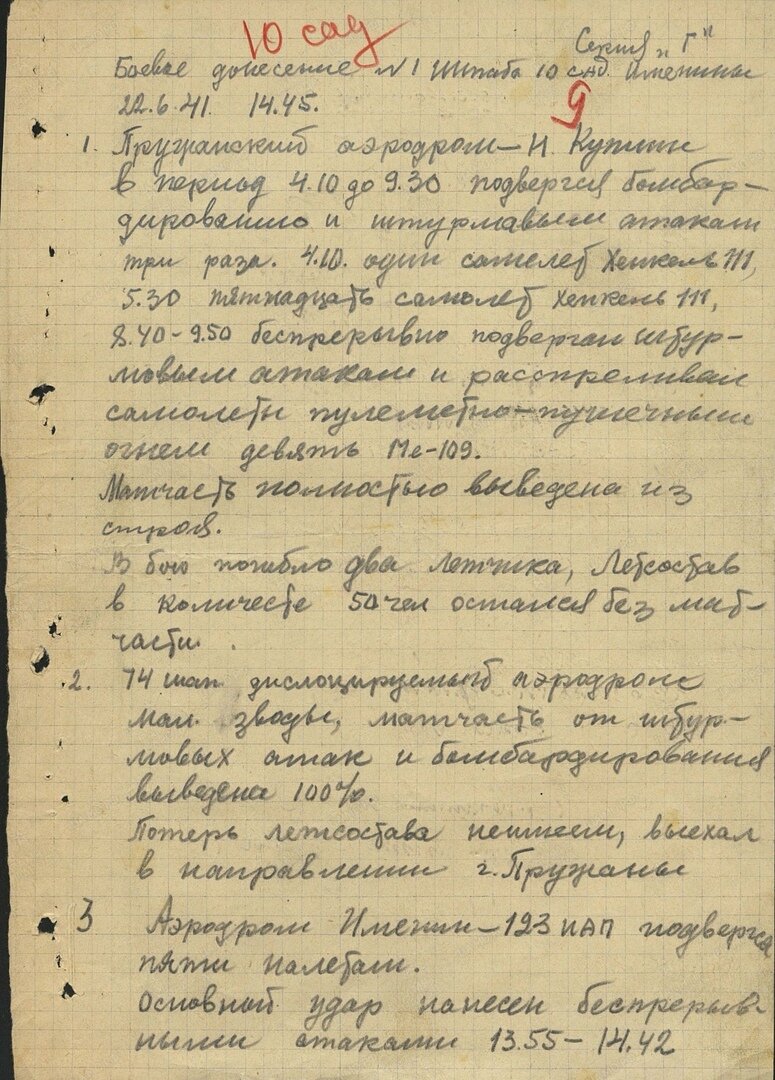 10 сад
Серия "Г"
Боевое донесение N1 Штаба 10 сад. Именины
9
22.6.41. 14.45.
1. Пружанский аэродром – Н. Куплин
в период 4.10 до 9.30 подвергся бомбар-
дированию и штурмавым атакам
три раза. 4.10. один самолет Хенкель 111,
5.30 пятнадцать самолет Хенкель 111,
8.40-9.50 беспрерывно подвергал штур-
мовым атакам и расстреливал
самолеты пулеметно-пушечным
огнем девять Ме-109.
Матчасть полностью выведена из
строя.
В бою погибло два летчика, Летсостав
в количесте 50 чел остался без мат-
части.
2. 74 шап дислоцируемый аэродром
мал. зводы, матчасть от штур-
мовых атак и бомбардирования
выведена 100%.
Потерь летсостава не имеем, выехал
в направлении г. Пружаны
3 Аэродром Именин – 123 ИАП подвергся
пяти налетам.
Основной удар нанесен беспрерыв-
ными атаками 13.55 – 14.42